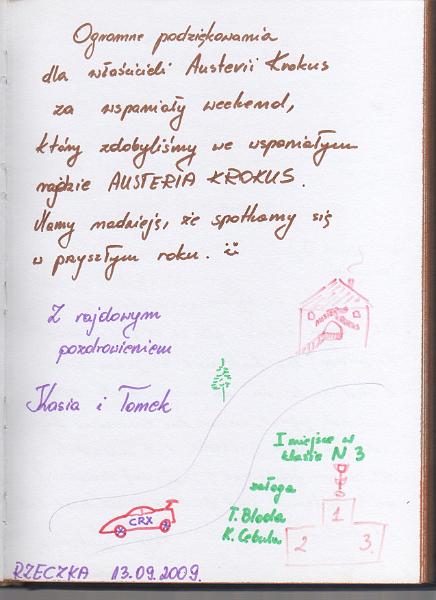 Ogromne podziękowania
dla właścicieli Austerii Krokus
za wspaniały weekend,
który zdobyliśmy we wspaniałym
rajdzie AUSTERIA KROKUS.
Mamy nadzieję, że spotkamy się
w przyszłym roku.
Z rajdowym
pozdrowieniem
Kasia i Tomek
AUSTERIA
KROKUS
I miejsce w
klasie N 3
załoga
T. Bloda
K. Cebula
1
2 3.
CRX
RZECZKA 13.09.2009.